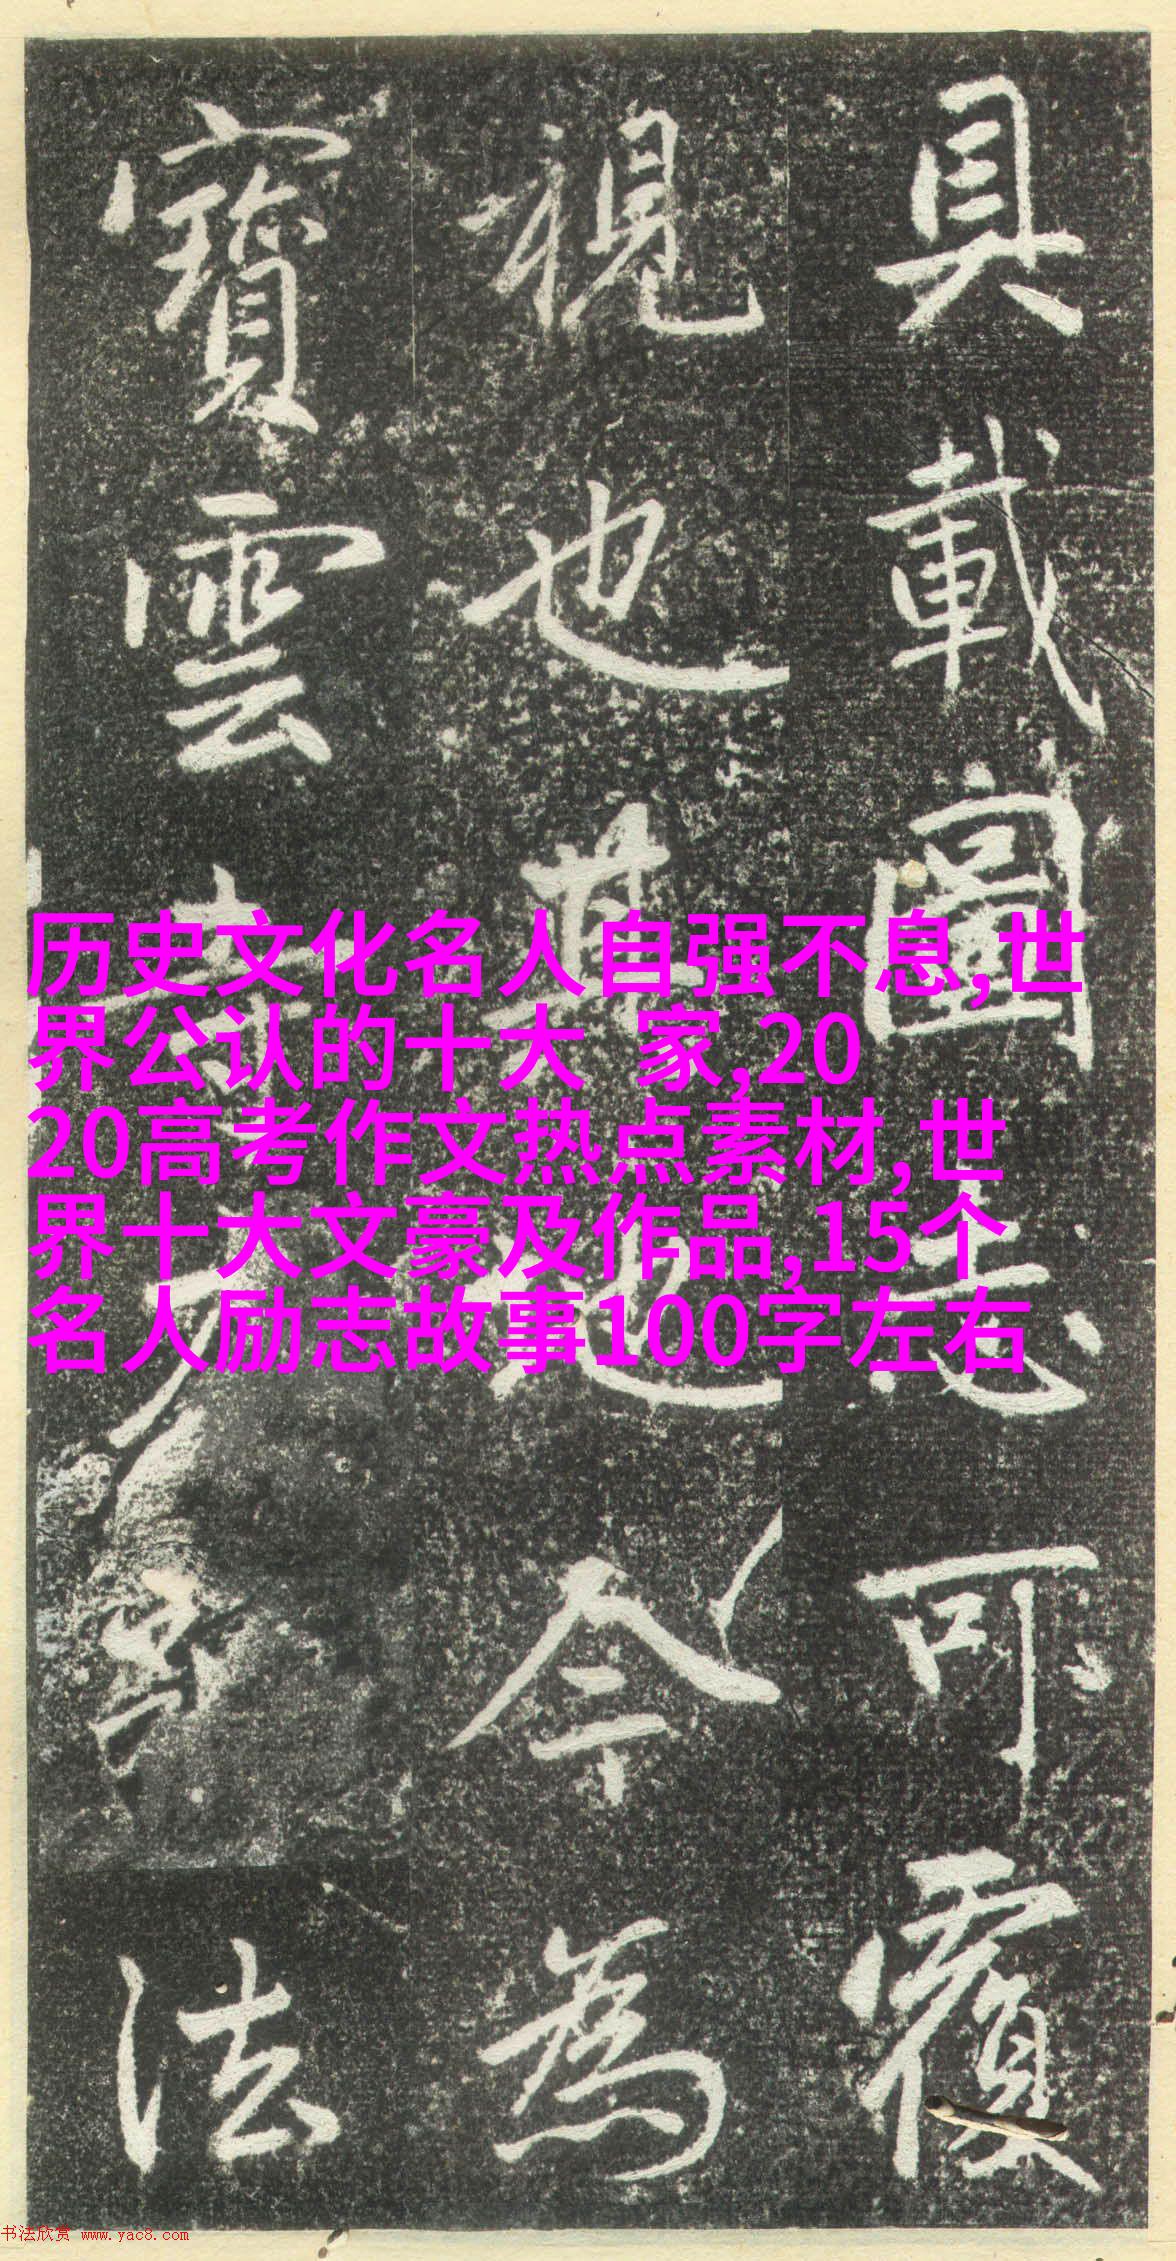 具載圖志可覆
視也其地今為
寶雲寺法
历史文化名人自强不息,世
界公认的十大 家,20
20高考作文热点素材,世
界十大文豪及作品,15个
名人励志故事100字左右
书法欣赏 www.yac8.com